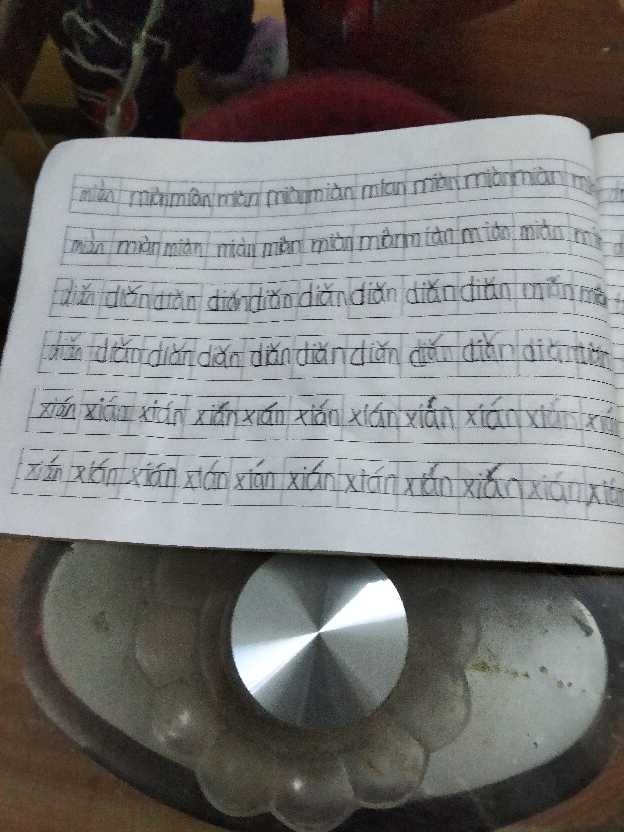 miàn miàn miàn miàn miàn miàn miàn miàn miàn miàn
miàn miàn miàn miàn miàn miàn miàn miàn miàn miàn
diǎn diǎn diǎn diǎn diǎn diǎn diǎn diǎn diǎn
diǎn diǎn diǎn diǎn diǎn diǎn diǎn diǎn diǎn diǎn
xián xián xián xián xián xián xián xián xián xián
xián xián xián xián xián xián xián xián xián xián